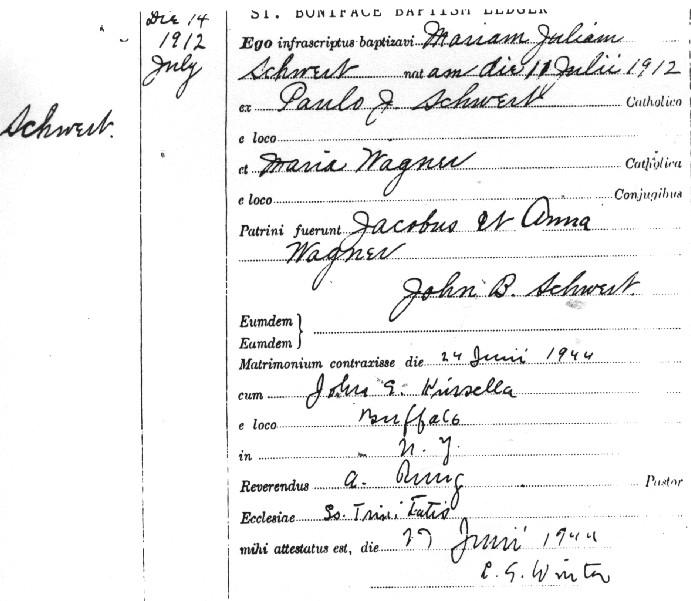 ST. BONIFACE BAPTISM LEDGER
Die 14
1912
July
Schwert.
Ego infrascriptus baptizavi Mariam Juliam
Schwert natam die 11 Julii 1912
ex Paulo J. Schwert Catholico
e loco
et Maria Wagner Catholica
e loco Conjugibus
Patrini fuerunt Jacobus et Anna
Wagner
John B. Schwert.
Eumdem
Eamdem
Matrimonium contraxisse die 24 Junii 1944
cum John E.
e loco Buffalo
in N. Y.
Reverendus A. Pastor
Ecclesiae Ss. Trinitatis
mihi attestatus est, die 27 Junii 1944
Winter